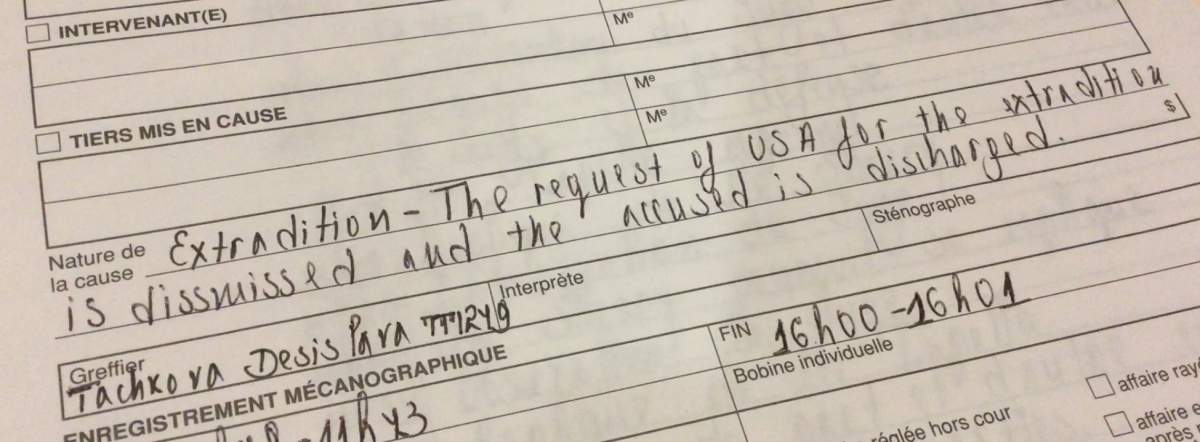 INTERVENANT(E)
Me
Me
TIERS MIS EN CAUSE
Me
Nature de la cause
Extradition - The request of USA for the extradition
$
is dissmissed and the accused is discharged.
Sténographe
Interprète
Greffier
Tachkova Desis Para TT1249
FIN
16h00-16h01
ENREGISTREMENT MÉCANOGRAPHIQUE
Bobine individuelle
affaire
réglée hors cour
affaire